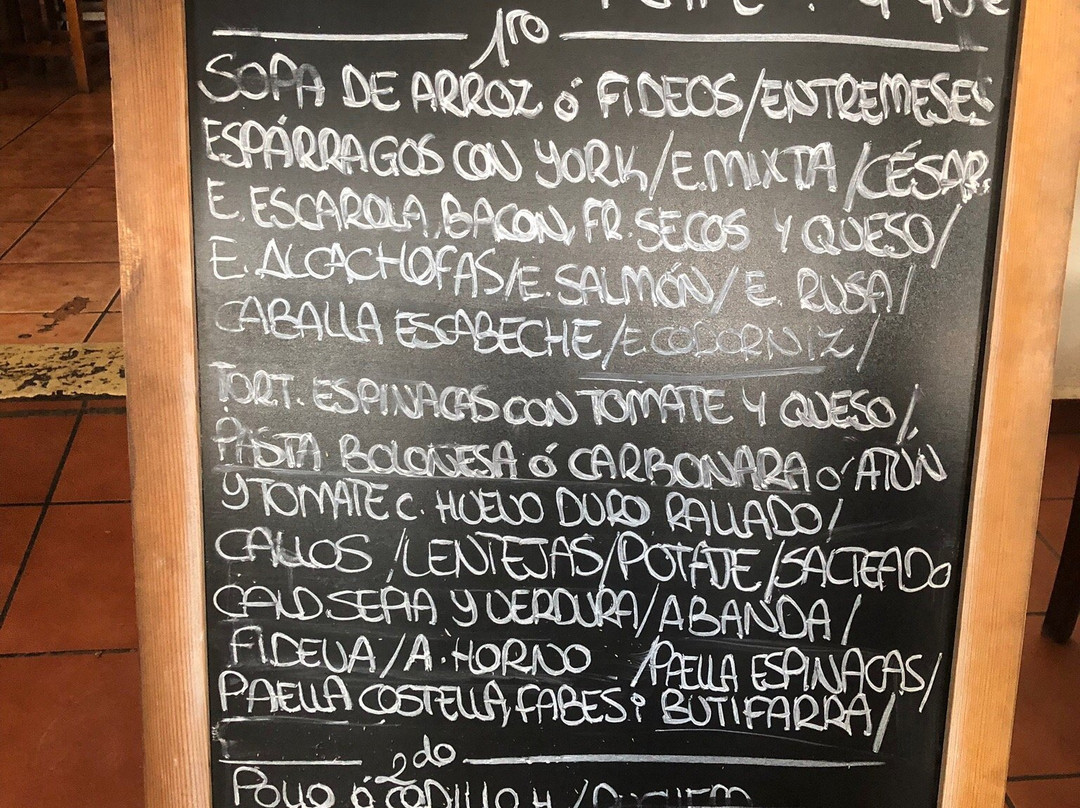 1ro
SOPA DE ARROZ ó FIDEOS/ENTREMESES
ESPÁRRAGOS CON YORK/E.MIXTA/CÉSAR
E. ESCAROLA, BACON, FR. SECOS Y QUESO/
E. ALCACHOFAS/E. SALMÓN/E. RUSA/
CABALLA ESCABECHE/E CODORNIZ/
TORT. ESPINACAS CON TOMATE Y QUESO/
PASTA BOLONESA ó CARBONARA ó ATÚN
Y TOMATE C. HUEVO DURO RALLADO/
CALLOS/LENTEJAS/POTATJE/SALTEADO
CALD SEPIA Y VERDURA/A BANDA/
FIDEUA/A. HORNO/PAELLA ESPINACAS/
PAELLA COSTELLA, FABES i BUTIFARRA/
2do
POLLO ó CODILLO H/